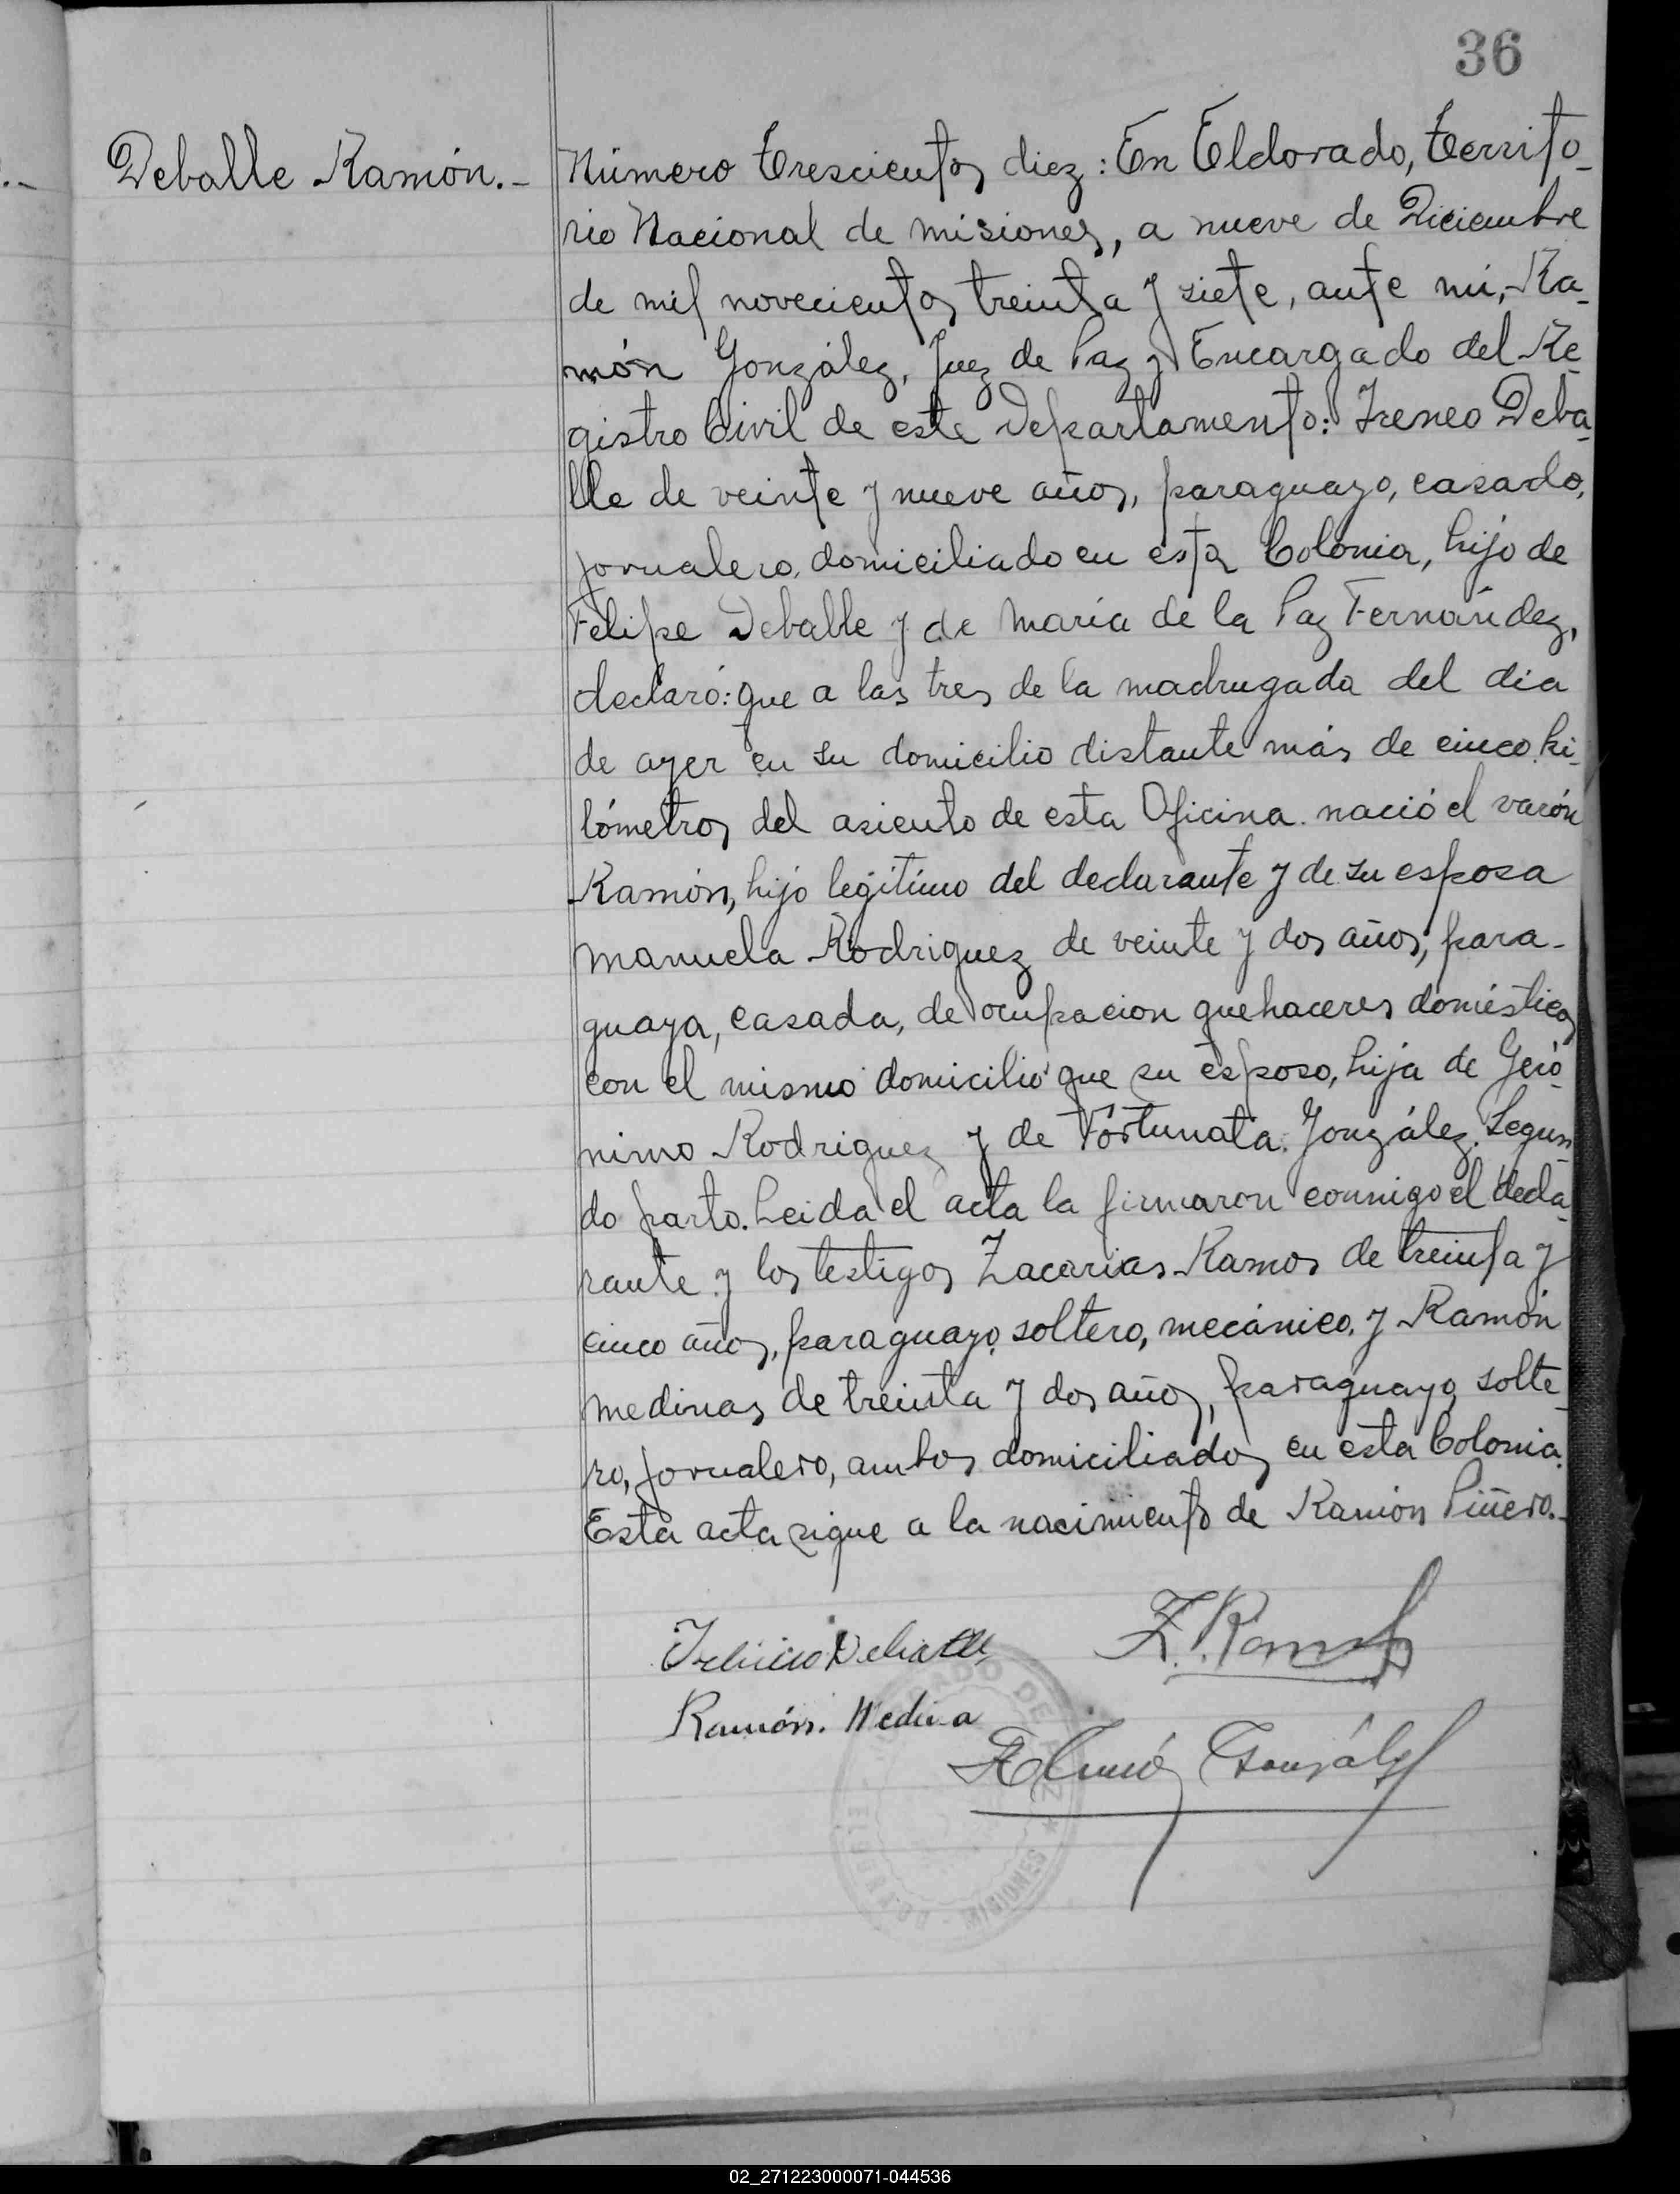 36
Deballe Ramón.-
Número trescientos diez: En Eldorado, territo-
rio Nacional de misiones, a nueve de Diciembre
de mil novecientos treinta y siete, ante mi, Ra-
món González, Juez de Paz y Encargado del Re-
gistro Civil de este Departamento: Ireneo Deba-
lle de veinte y nueve años, paraguayo, casado,
jornalero, domiciliado en esta Colonia, hijo de
Felipe Deballe y de María de la Paz Fernández,
declaró: que a las tres de la madrugada del dia
de ayer en su domicilio distante más de cinco ki-
lómetros del asiento de esta Oficina. nació el varón
Ramón, hijo legítimo del declarante y de su esposa
manuela Rodriguez de veinte y dos años, para-
guaya, casada, de ocupacion quehaceres domésticos
con el mismo domicilio que su esposo, hija de Geró-
nimo Rodriguez y de Fortunata González. Segun-
do parto. Leida el acta la firmaron conmigo el decla-
rante y los testigos Zacarias Ramos de treinta y
cinco años, paraguayo, soltero, mecánico, y Ramón
medinas de treinta y dos años, paraguayo, solte-
ro, jornalero, ambos domiciliados en esta Colonia.
Esta acta sigue a la nacimiento de Ramón Piñero.-
Deballe
Z. Ramos
Ramón. Medina
Ramón González
JUZGADO DE PAZ * ELDORADO - MISIONES
02_271223000071-044536